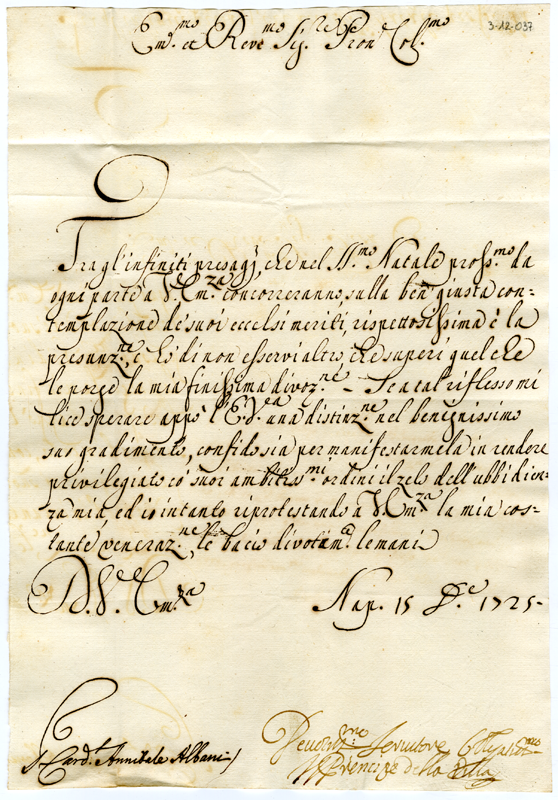 3-12-037
Em.mo et Rev.mo Sig.re Pron Col.mo
Tra gl'infiniti presagj, che nel SS.mo Natale pross.mo da
ogni parte a V. Em.za concorreranno, sulla ben giusta con-
templazione de' suoi eccelsi meriti, rispettosissima è la
presunz.ne, che hò di non esservi altro, che superi quel che
le porge la mia finissima divoz.ne - Se a tal riflesso mi
lice sperare app.o l'E.V.ra una distinz.ne nel benignissimo
suo gradimento, confido sia per manifestarmela in rendere
privilegiato co' suoi ambitiss.mi ordini il zelo dell'ubbidien-
za mia, ed io intanto riprotestando a V. Em.za la mia cos-
tante veneraz.ne, le bacio divotam.te le mani
D. V. Em.za
Nap. 15 D.e 1725.
S. Card. Annibale Albani
Devotis.mo Servitore Obligat.mo
Il Prencipe della